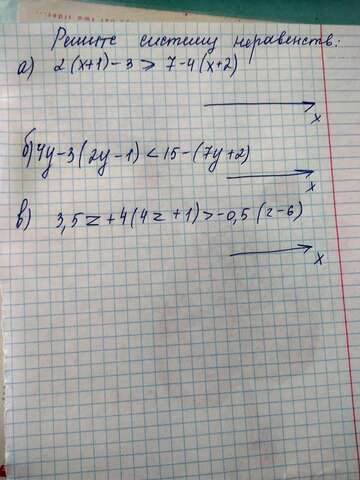 Решите систему неравенств:
а) 2(x+1)-3 > 7-4(x+2)
x
б) 4y-3(2y-1) < 15-(7y+2)
x
в) 3,5z+4(4z+1) > -0,5(z-6)
x